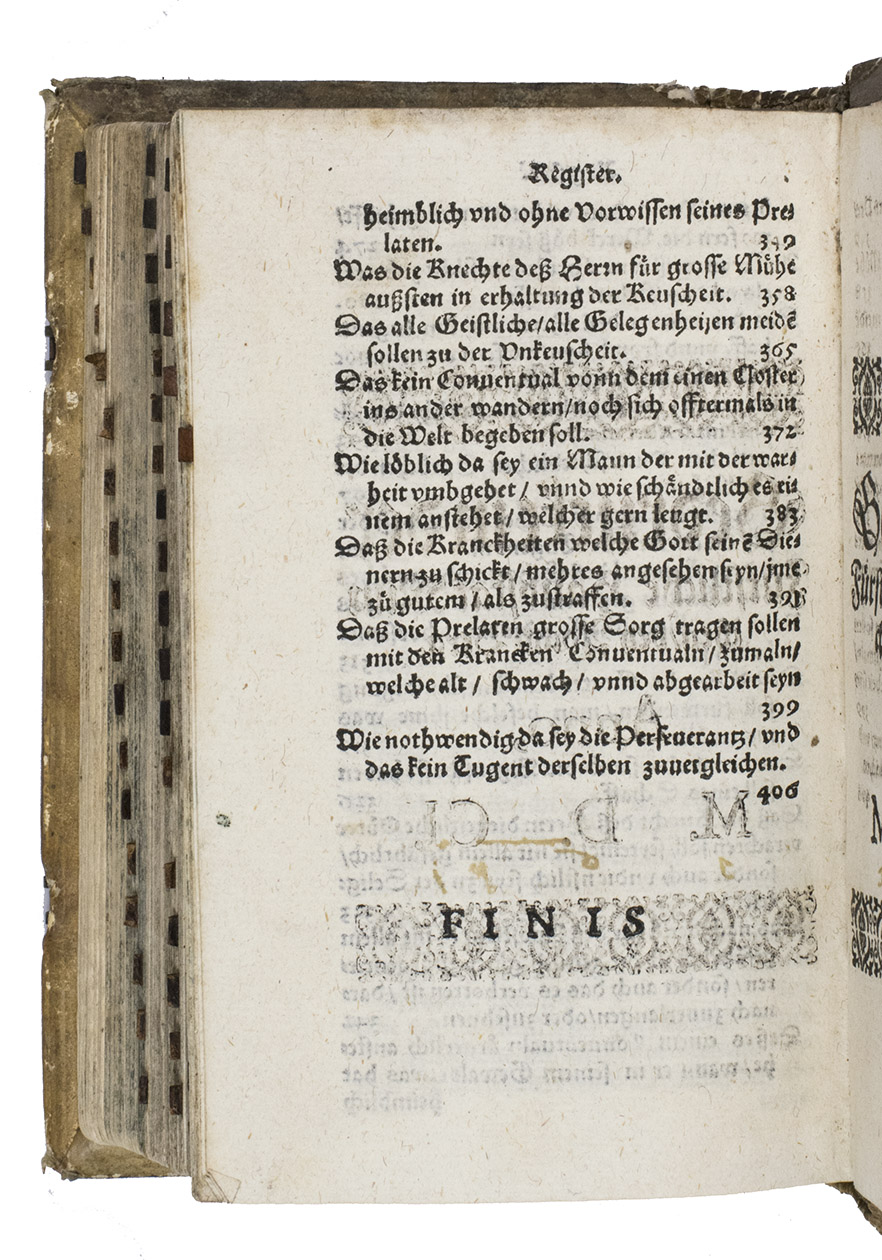 Register.
heimblich vnd ohne Vorwissen seines Pre⸗
laten. 349
Was die Knechte deß Herrn für grosse Mühe
außsten in erhaltung der Keuscheit. 358
Das alle Geistliche/alle Gelegenheiten meidẽ
sollen zu der Vnkeuscheit. 365
Das kein Conuentual vonn dem einen Closter
ins ander wandern/noch sich offtermals in
die Welt begeben soll. 372
Wie löblich da sey ein Mann der mit der war⸗
heit vmbgehet / vnnd wie schändtlich es ei⸗
nem anstehet / welcher gern leugt. 383
Daß die Kranckheiten welche Gott seinẽ Die⸗
nern zu schickt / mehres angesehen seyn/jme
zů gutem / als zustraffen. 391
Daß die Prelaten grosse Sorg tragen sollen
mit den Krancken Conuentualn / zumaln/
welche alt / schwach / vnnd abgearbeit seyn
399
Wie nothwendig da sey die Perseuerantz/ vnd
das kein Tugent derselben zuuergleichen.
406
FINIS